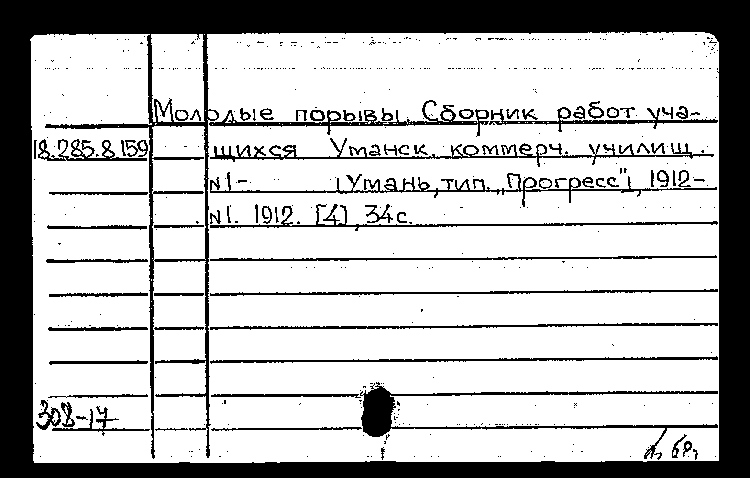 Молодые порывы. Сборник работ уча-
18.285.8.159 щихся Уманск. коммерч. училищ.
N1- (Умань, тип. „Прогресс"), 1912-
N1. 1912. [4], 34с.
308-17